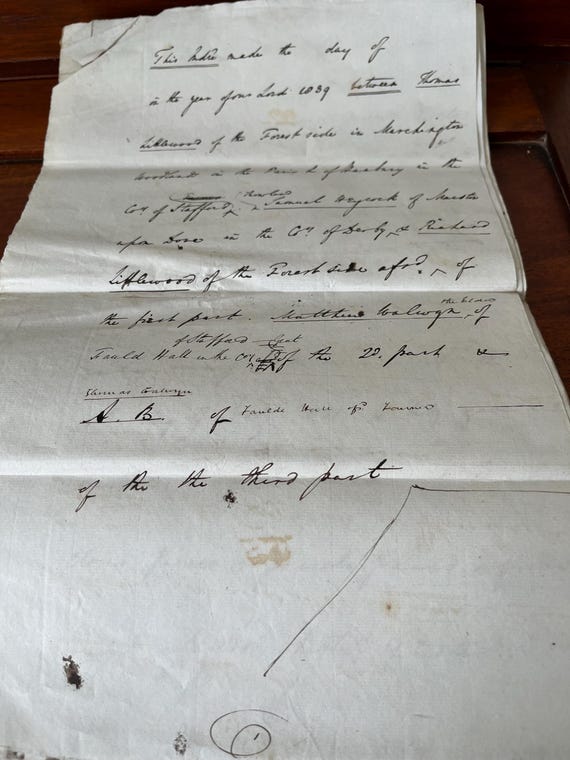 This Indre made the day of
in the year of our Lord 1839 between Thomas
Littlewood of the Forest side in Marchington
Woodland in the Parish of Hanbury in the
Coy of Stafford, & Samuel Heycock of Marston
upon Dove in the Coy of Derby, & Richard
Littlewood of the Forest side afsd, of
the first part. Matthew Calwyn, of
of Stafford Gent
Fauld Hall in the Coy of the 2d. part &
Thomas Calwyn
A. B. of Faulde Hall afsd Farmer
of the the third part
1